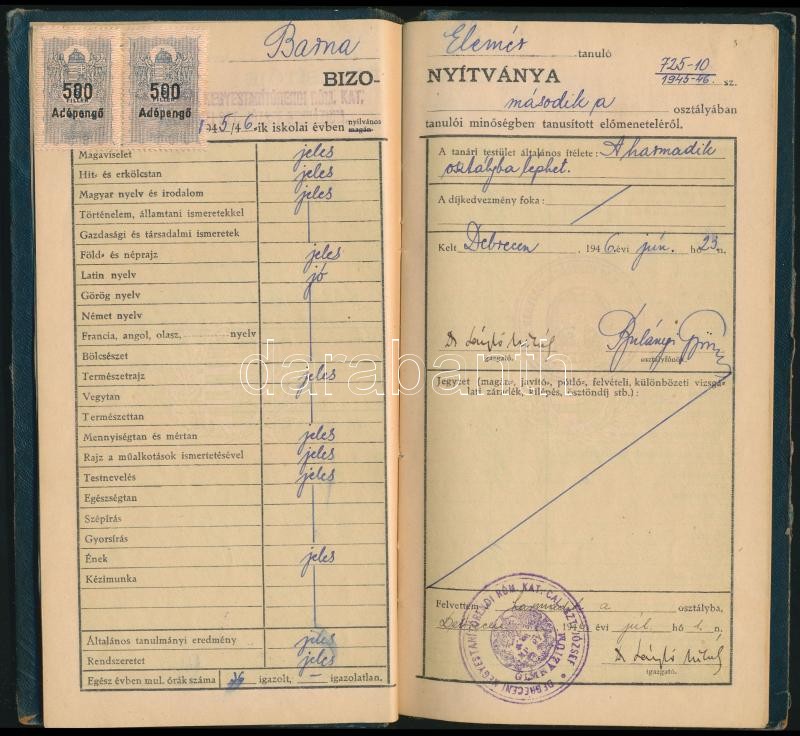 500
FILLÉR
Adópengő
500
FILLÉR
Adópengő
Barna
BIZO-
KEGYESTANÍTÓRENDI RÓM. KAT.
1945/46.-ik iskolai évben nyilvános
magán-
Magaviselet jeles
Hit- és erkölcstan jeles
Magyar nyelv és irodalom jeles
Történelem, államtani ismeretekkel
Gazdasági és társadalmi ismeretek
Föld- és néprajz jeles
Latin nyelv jó
Görög nyelv
Német nyelv
Francia, angol, olasz, nyelv
Bölcsészet
Természetrajz jeles
Vegytan
Természettan
Mennyiségtan és mértan jeles
Rajz a műalkotások ismertetésével jeles
Testnevelés jeles
Egészségtan
Szépírás
Gyorsírás
Ének jeles
Kézimunka
Általános tanulmányi eredmény jeles
Rendszeretet jeles
Egész évben mul. órák száma 36 igazolt, — igazolatlan.
Elemér tanuló
NYÍTVÁNYA 725-10
1945-46. sz.
második a osztályában
tanulói minőségben tanusított előmeneteléről.
A tanári testület általános ítélete: A harmadik
osztályba léphet.
A díjkedvezmény foka:
Kelt Debrecen, 1946. évi jún. hó 23-n.
Dr László Mihály
igazgató.
osztályfőnök.
Jegyzet (magán-, javító-, pótló-, felvételi, különbözeti vizsgá-
lati záradék, kilépés, ösztöndíj stb.):
Felvettem a osztályba,
Debrecen 194 évi júl. hó 1. n.
DEBRECENI KEGYESTANÍTÓRENDI RÓM. KAT. CALAZ. JÓZSEF GIMNÁZIUM
Dr László Mihály
igazgató.
darabanth.com